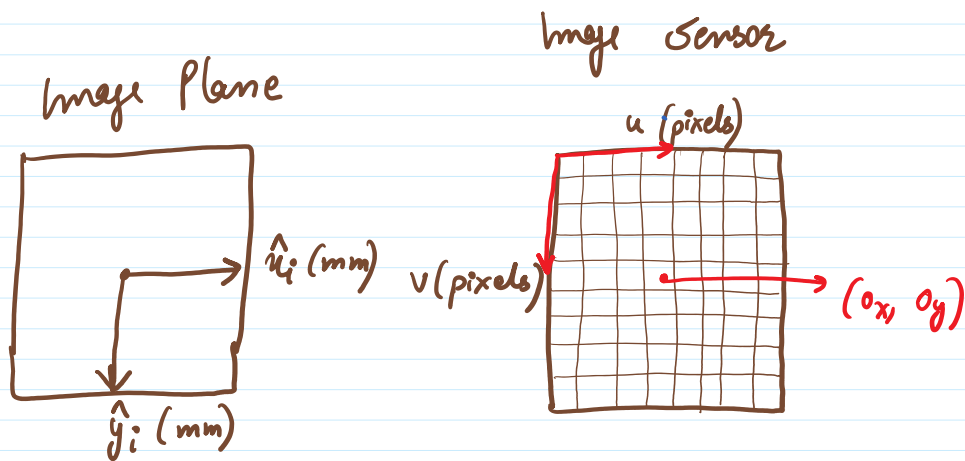 Image Plane
x̂ᵢ (mm)
ŷᵢ (mm)
Image Sensor
u (pixels)
v (pixels)
(oₓ, o_y)